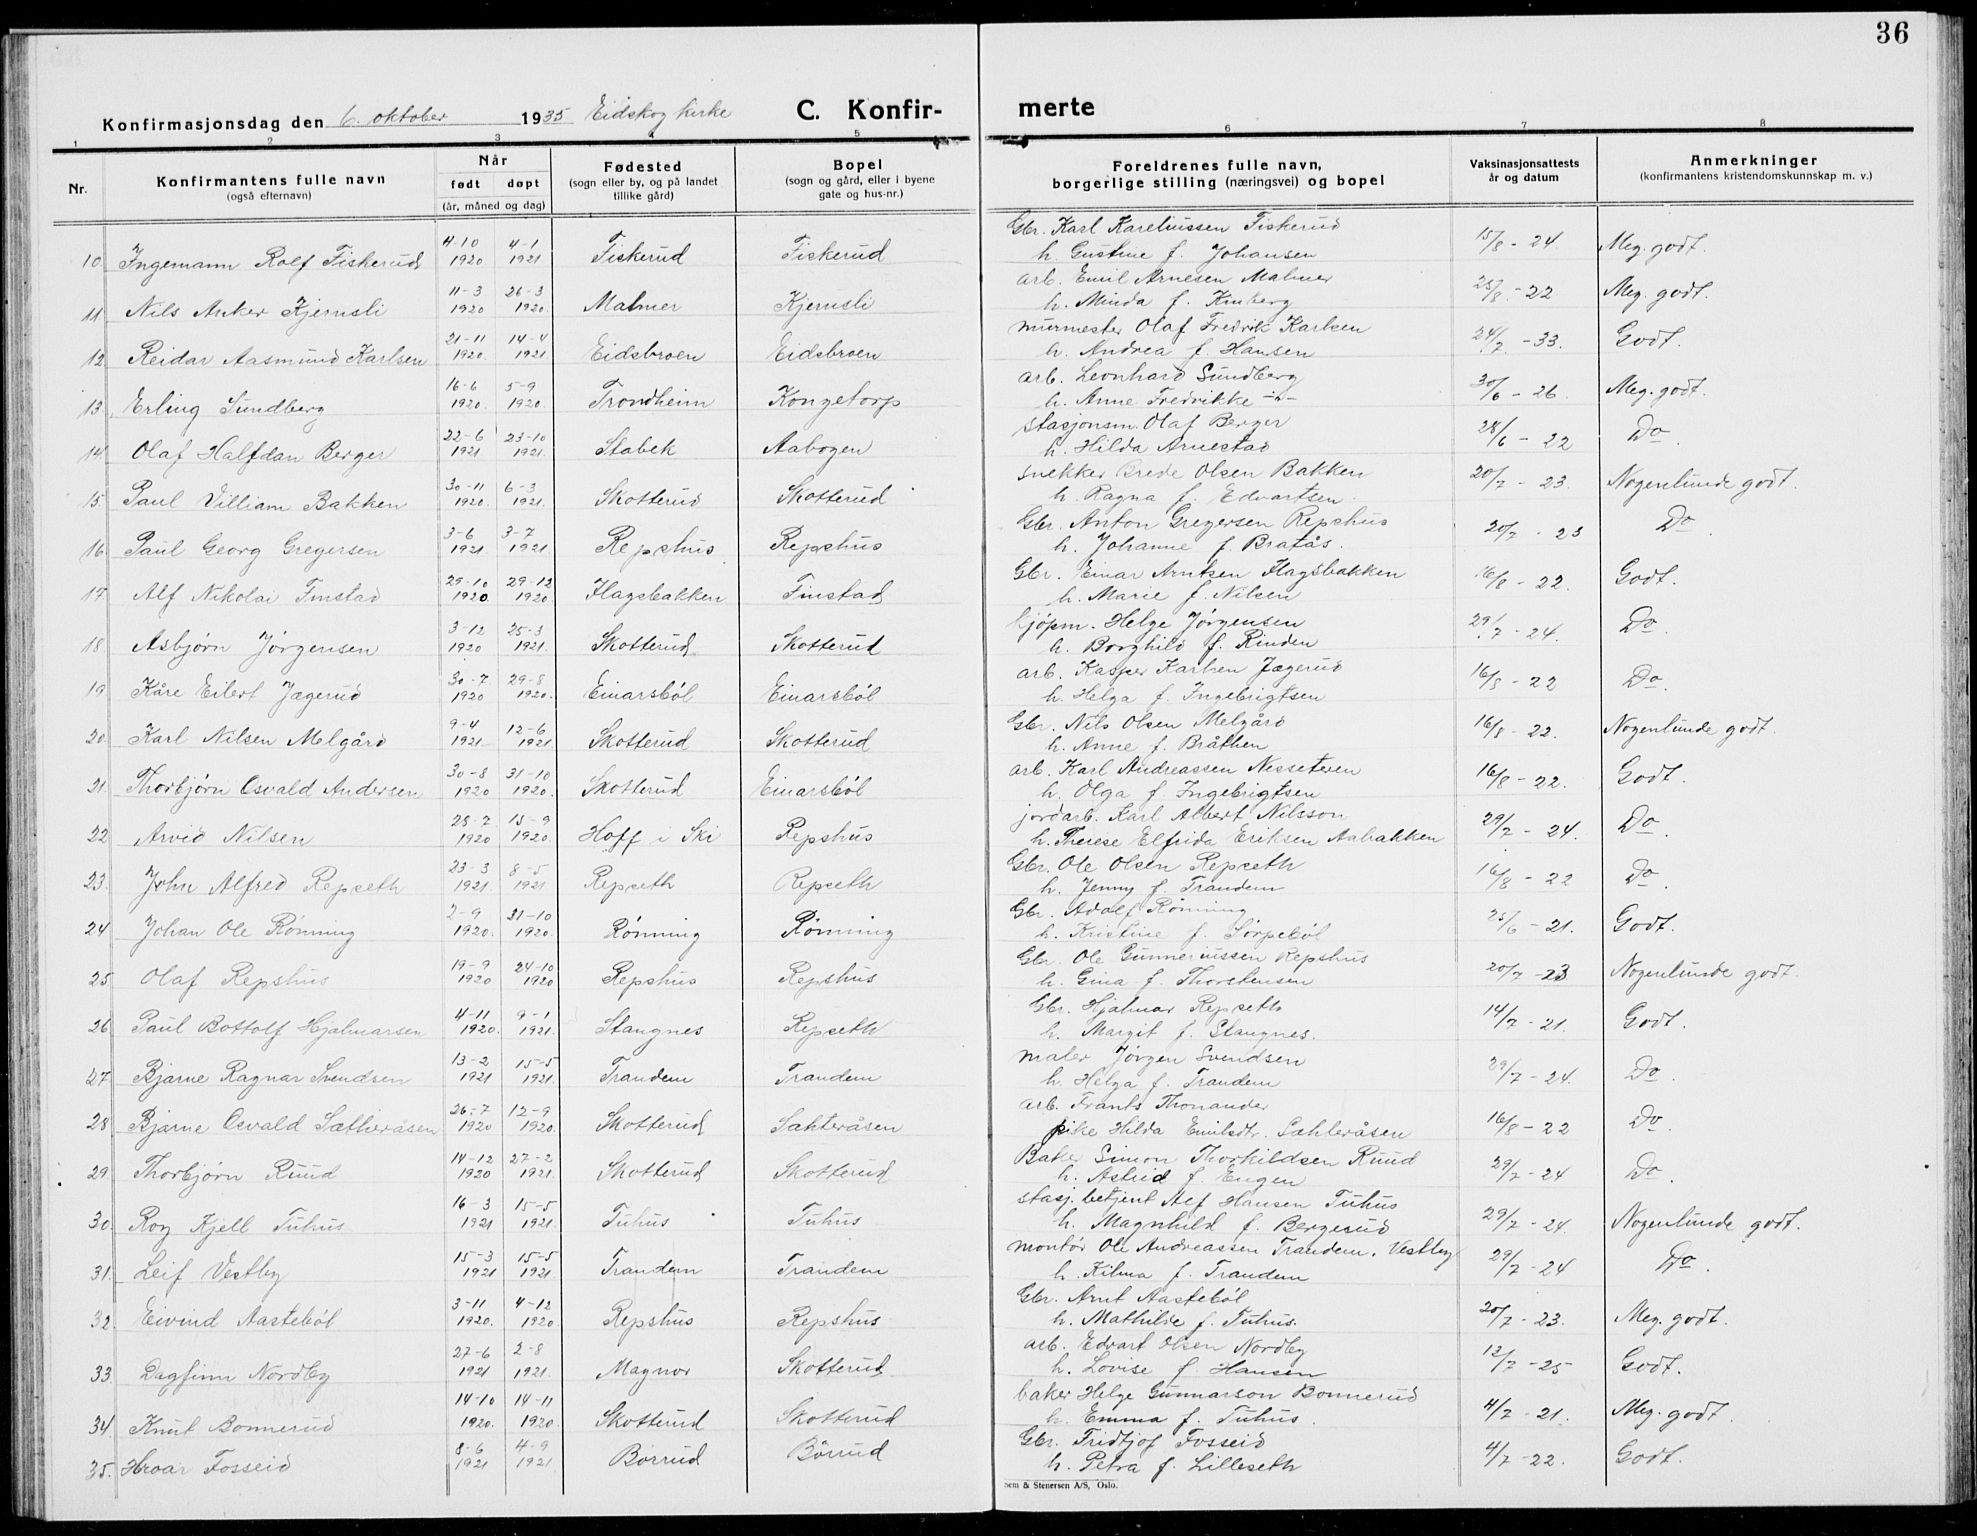 36
Konfirmasjonsdag den 6. oktober 1935 Eidskog kirke C. Konfir- merte
1 2 3 4 5 6 7 8
Nr. Konfirmantens fulle navn (også efternavn) Når født døpt (år, måned og dag) Fødested (sogn eller by, og på landet tillike gård) Bopel (sogn og gård, eller i byene gate og hus-nr.) Foreldrenes fulle navn, borgerlige stilling (næringsvei) og bopel Vaksinasjonsattests år og datum Anmerkninger (konfirmantens kristendomskunnskap m. v.)
10. Ingemann Rolf Fiskerud 4-10 1920 4-1 1921 Fiskerud Fiskerud Gbr. Karl Kareliussen Fiskerud 15/8 - 24 Meg. godt.
h. Gustine f. Johansen
11 Nils Anker Kjernsli 11-3 1920 26-3 1920. Malmer Kjernsli arb. Emil Arnesen Malmer 25/8 - 22 Meg. godt.
h. Minda f. Kinberg
12 Reidar Aasmund Karlsen 21-11 1920. 14-4 1921 Eidsbroen Eidsbroen murmester Olaf Fredrik Karlsen 24/7 - 33. Godt.
h. Andrea f. Hansen
13. Erling Sundberg 16-6 1920. 5-9 1920. Trondheim Kongetorp arb. Leonhard Sundberg 30/6 - 26 Meg. godt.
h. Anne Fredrikke -"-
14 Olaf Halfdan Berger 22-6 1921 23-10 1921. Stabek Aabogen Stasjonsm. Olaf Berger 28/6 - 22 Do.
h. Hilda Arnestad
15. Paul Villiam Bakken 30-11 1920. 6-3 1921. Skotterud Skotterud snekker Brede Olsen Bakken 20/7 - 23. Nogenlunde godt.
h. Ragna f. Edvartsen.
16 Paul Georg Gregersen 3-6 1921 3-7 1921 Repshus Repshus Gbr. Anton Gregersen Repshus 20/7 - 23 Do.
h. Johanne f. Bratås.
17. Alf Nikolai Finstad 25-10 1920 29-12 1920. Flagsbakken Finstad Gbr. Einar Arntsen Flagsbakken 16/8 - 22. Godt.
h. Marie f. Nilsen
18 Asbjørn Jørgensen 3-12 1920 25-3 1921. Skotterud Skotterud kjøpm. Helge Jørgensen 29/7 - 24. Do.
h. Borghild f. Rinden
19. Kåre Eilert Jægerud 30-7 1920 29-8 1920. Einarsbøl Einarsbøl arb. Kasper Karlsen Jægerud 16/8 - 22 Do.
h. Helga f. Ingebrigtsen
20. Karl Nilsen Melgård 9-4 1921 12-6 1921 Skotterud Skotterud Gbr. Nils Olsen Melgård 16/8 - 22. Nogenlunde godt.
h. Anne f. Bråthen
21. Thorbjørn Osvald Andersen 30-8 1920 31-10 1920. Skotterud Einarsbøl arb. Karl Andreassen Nesseteren 16/8 - 22. Godt.
h. Olga f. Ingebrigtsen
22 Arvid Nilsen 28-7 1920 15-9 1920. Hoff i Ski Repshus jordarb. Karl Albert Nilsson 29/7 - 24. Do.
h. Therese Elfrida Eriksen Aabakken
23. John Alfred Repseth 23-3 1921. 8-5 1921 Repseth Repseth Gbr. Ole Olsen Repseth 16/8 - 22 Do.
h. Jenny f. Trandem
24 Johan Ole Rønning 2-9 1920. 31-10 1920. Rønning Rønning Gbr. Adolf Rønning 25/6 - 21. Godt.
h. Kristine f. Sørpebøl
25. Olaf Repshus 19-9 1920 24-10 1920 Repshus Repshus Gbr. Ole Gunneriussen Repshus 20/7 - 23 Nogenlunde godt.
h. Gina f. Thorstensen
26 Paul Bottolf Hjalmarsen 4-11 1920. 9-1 1921. Stangnes Repseth Gbr. Hjalmar Repseth 14/7 - 21. Godt.
h. Margit f. Stangnes.
27. Bjarne Ragnar Svendsen 13-2 1921 15-5 1921 Trandem Trandem maler Jørgen Svendsen 29/7 - 24. Do.
h. Helga f. Trandem
28 Bjarne Osvald Sætheråsen 26-7 1920 12-9 1920. Skotterud Sæhteråsen arb. Frants Thonander 16/8 - 22 Do.
pike Hilda Emilsdtr. Sæhleråsen
29. Thorbjørn Ruud 14-12 1920 27-2 1921. Skotterud Skotterud Baker Simon Thorkildsen Ruud 29/7 - 24 Do.
h. Astrid f. Engen
30. Roy Kjell Tuhus 16-3 1921 15-5 1921 Tuhus Tuhus stasj. betjent Alf Hansen Tuhus 29/7 - 24. Nogenlunde godt.
h. Magnhild f. Bergerud
31. Leif Vestby 15-3 1921 15-5 1921 Trandem Trandem montør Ole Andreassen Trandem, Vestby 29/7 - 24 Do.
h. Kilma f. Trandem
32. Eivind Aastebøl 3-11 1920. 4-12 1920. Repshus Repshus Gbr. Arnt Aastebøl 20/7 - 23. Meg. godt.
h. Mathilde f. Tuhus.
33. Dagfinn Nordby 27-6 1921 2-8 1921. Magnor Skotterud arb. Edvart Olsen Nordby 12/7 - 25 Godt.
h. Lovise f. Hansen
34. Knut Bonnerud 14-10 1920. 14-11 1920. Skotterud Skotterud baker Helge Gunnarson Bonnerud 4/7 - 21. Meg. godt
h. Emma f. Tuhus.
35. Hroar Fosseid 8-6 1921 4-9 1921 Børrud Børrud Gbr. Fridtjof Fosseid 4/7 - 22. Godt.
h. Petra f. Lilleseth
Sem & Stenersen A/S, Oslo.